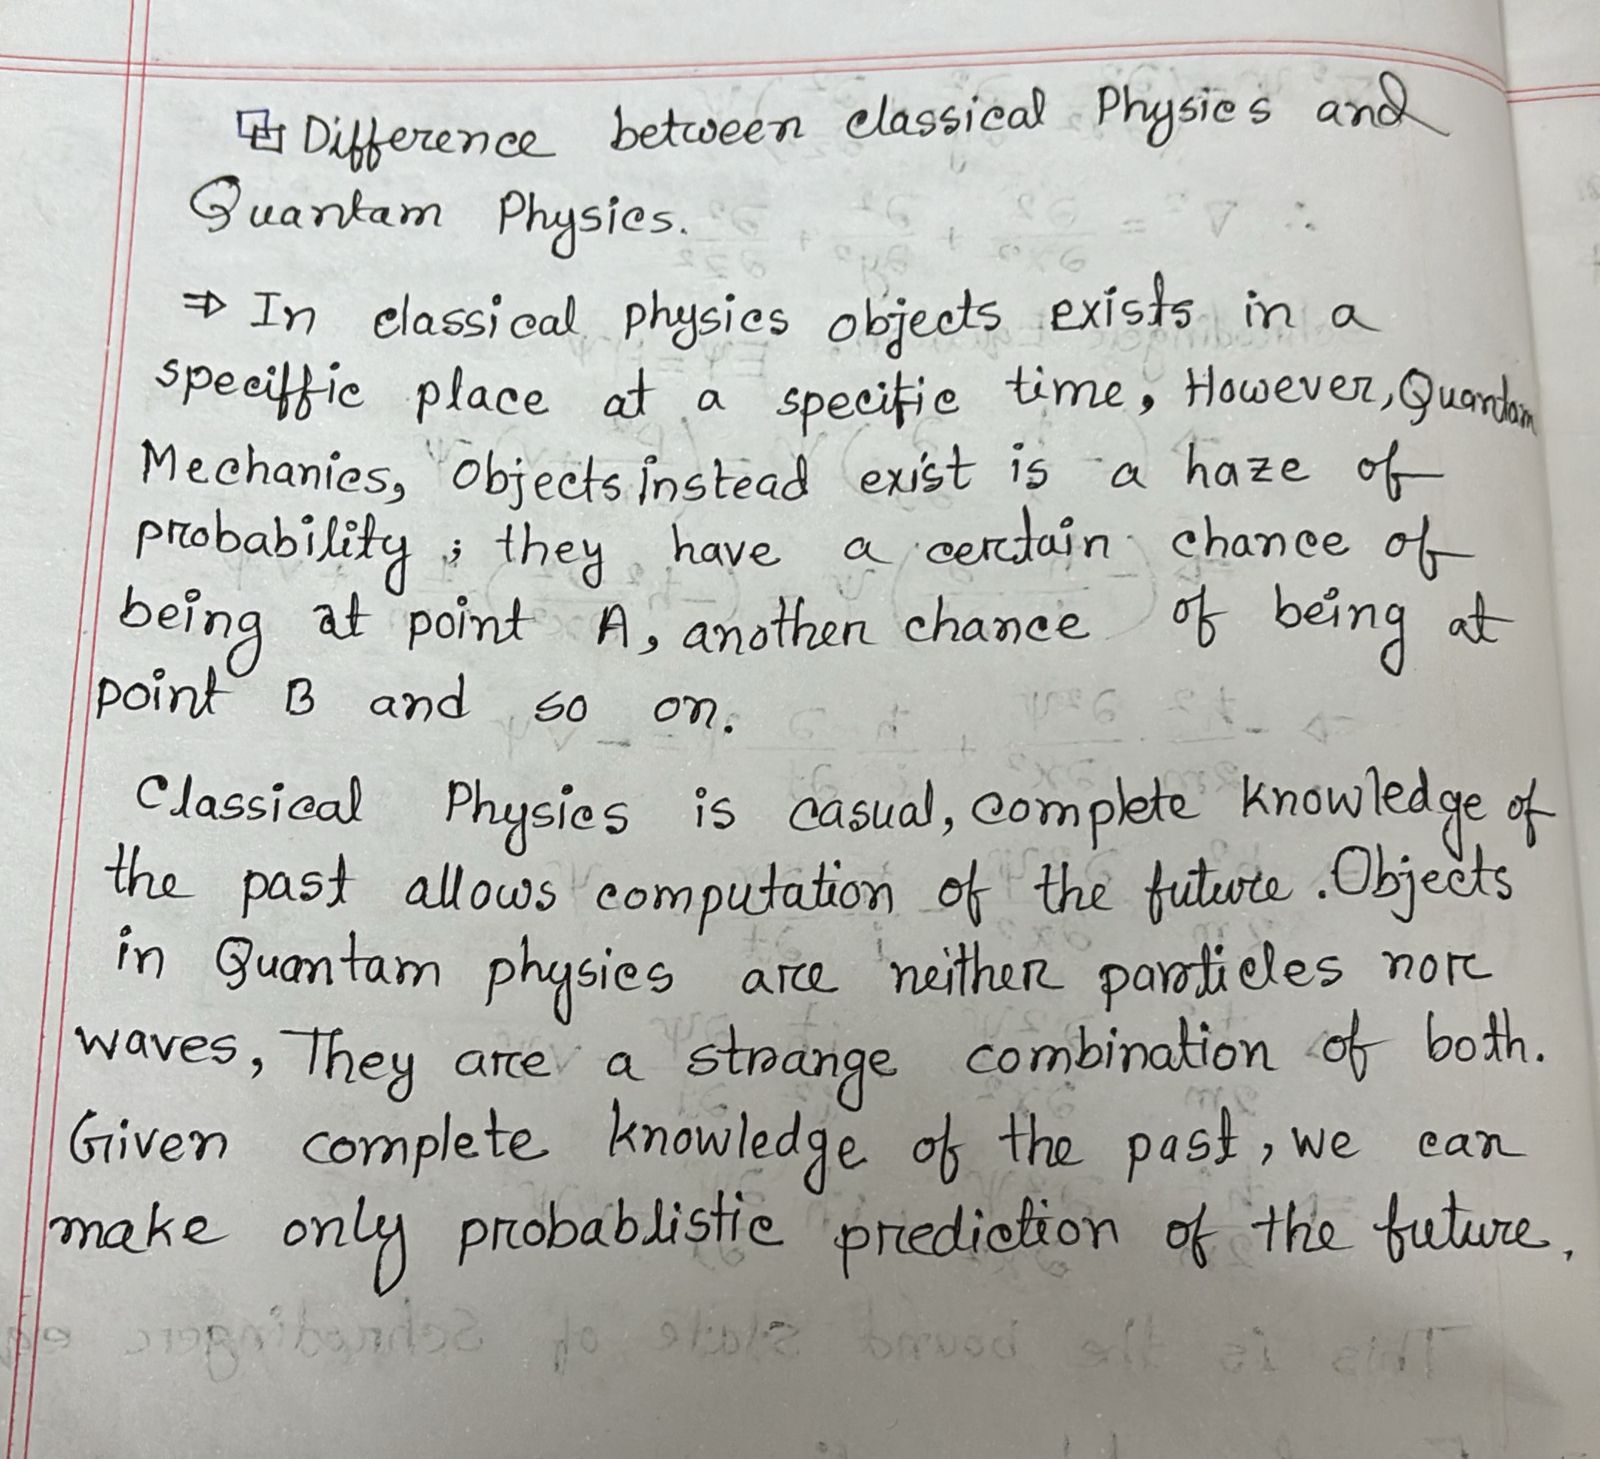 Difference between classical Physics and
Quantam Physics.
⇒ In classical physics objects exists in a
speciffic place at a specific time, However, Quantam
Mechanics, Objects instead exist is a haze of
probability ; they have a certain chance of
being at point A, another chance of being at
point B and so on.
Classical Physics is casual, complete knowledge of
the past allows computation of the future. Objects
in Quantam physics are neither particles nor
waves, They are a strange combination of both.
Given complete knowledge of the past, we can
make only probablistic prediction of the future.